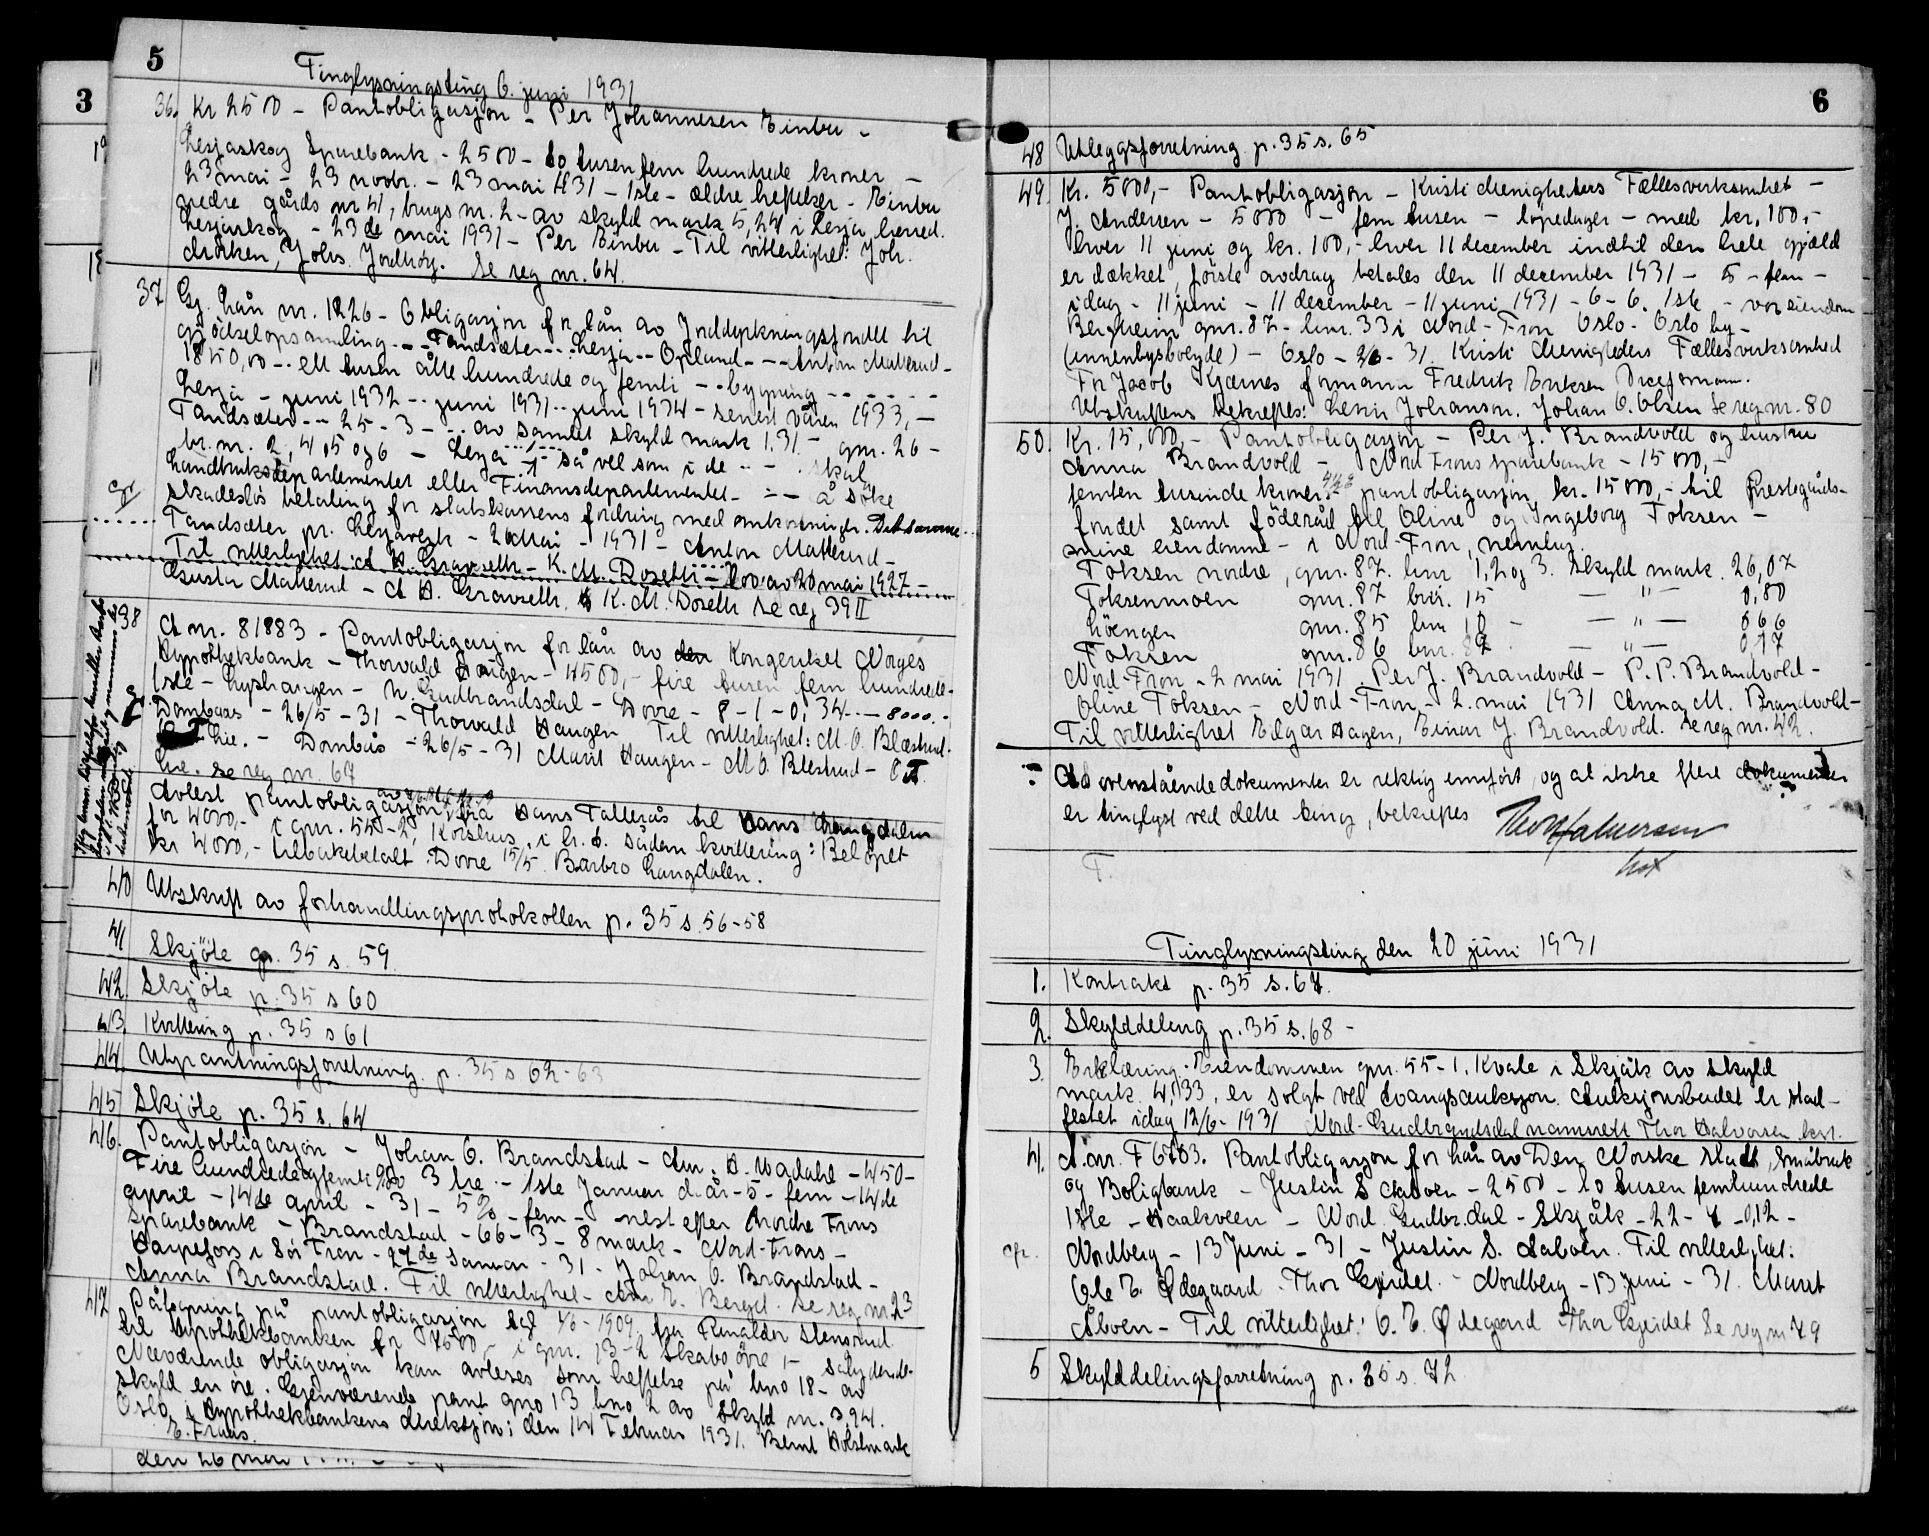 3
5
Tinglysningsting 6. juni 1931
36. Kr 2500 - Pantobligasjon - Per Johannesen Einbu -
Lesjaskog Sparebank - 2500 - to tusen fem hundrede kroner -
23 mai - 23 novbr. - 23 mai 1931 - 1ste - ældre heftelser - Einbu
nedre gårds nr 41, brugs nr. 2 - av skyld mark 5,24 i Lesja herred.
Lesjaskog - 23de mai 1931 - Per Einbu - Til vitterlighet: Joh.
Mörken, Johs. Jordhöy. Se reg nr. 64.
37 Gj. Lån nr. 1826 - Obligasjon for lån av Jorddyrkningsfondet til
gjödselopsamling - - Tandsæter - - Lesja - - Opland - - Anton Matterud -
1850,00 - - ett tusen åtte hundrede og femti - - bygning - - - - - -
Lesja - juni 1932 - - juni 1931 - - juni 1934 - senest våren 1933, -
Tandsæter - - 25 - 3 - - - av samlet skyld mark 1.31 - gnr. 26 -
br. nr. 2, 4, 5 og 6 - Lesja - - så vel som i de - - skal
Landbruksdepartementet eller Finansdepartementet - - - å söke
skadeslös betaling for statskassens fordring med omkostninger. Det samme
Tandsæter pr. Lesjaverk - 26 Mai - 1931 - Anton Matterud -
Til vitterlighet: A. H. Gravseth - K. M. Doseth - Lov av 20 mai 1927 -
Gusta Matterud - A. H. Gravseth, K. M. Doseth Se reg 39 II
38 A nr. 81883 - Pantobligasjon for lån av den Kongeriket Norges
Hypothekbank - Thorvald Haugen - 4500,- fire tusen fem hundrede -
1ste - Nyshaugen - N. Gudbrandsdal - Dovre - 8 - 1 - 0,34 - - 8000. -
Dombaas - 26/5 - 31 - Thorvald Haugen Til vitterlighet: M. O. Blæstrud.
Lie. - Dombås - 26/5 - 31 Marit Haugen - M O. Blestrud - O T.
Lie. Se reg nr. 67
Avlest pantobligasjon fra Hans Tallerås til Hans Langdalen
for 4000,- i gnr. 55-2, Korshus, i br. d. sådan kvittering: Belöpet
kr 4000,- tilbakebetalt. Dovre 15/5 Barbro Langdalen.
40 Utskrift av forhandlingsprotokollen p. 35 s. 56-58
41 Skjöte p. 35 s. 59
42. Skjöte p. 35 s 60
43. Kvittering p. 35 s 61
44. Utpantningsforretning p. 35 s 62-63
45 Skjöte p. 35 s. 64
46. Pantobligasjon - Johan O. Brandstad - - 450 -
Fire hundredeogfemti 3 tre - 1ste Januar d. år - 5 - fem - 14de
april - 14de april - 31 - 5% - fem - nest efter Nordre Frons
Sparebank - Brandstad - 66 - 3 - 8 mark - Nord-Frons -
Harpefoss i Sör Fron - 27de Januar - 31 - Johan O. Brandstad -
Anna Brandstad. Til vitterlighet - E. Berget. Se reg nr 23
47 Påtegning på pantobligasjon dat 4/6 - 1909 fra Rinaldo Stensrud
til Hypothekbanken for 7600,- i gnr. 13-2 Skabo övre, - Sålydende.
Nærværende obligasjon kan avleses som heftelse på bno 18 - av
skyld en öre. Gjenværende pant gno 13 bno 2 av skyld m. 3.94.
Oslo, i Hypothekbankens direksjon: den 14 Februar 1931. Bernt Holtsmark
E. Fraas.
den 26 mai
6
48 Utleggsforretning p. 35 s. 65
49. Kr. 5000,- Pantobligasjon - Kristi Menigheders Fællesvirksomhet -
J. Andersen - 5000 - fem tusen - löpedager - med kr. 100,-
hver 11 juni og kr. 100,- hver 11 december indtil den hele gjæld
er dækket, förste avdrag betales den 11 december 1931 - 5 - fem -
idag - 11 juni - 11 december - 11 juni 1931 - 6 - 6. 1ste - vor eiendom
Bergheim gnr. 87 - bnr. 33 i Nord-Fron Oslo - Oslo by -
(innenbysboende) - Oslo - 2/6 - 31. Kristi Menigheders Fællesvirksomhed
For Jacob Kjærnes formann Fredrik Eriksen Viceformann.
Utskriftens bekreftes: Johanson. Johan O. Olsen Se reg. nr. 80
50. Kr. 15,000,- Pantobligasjon - Per J. Brandvold og hustru
Anna Brandvold - Nord Frons sparebank - 15 000,-
femten tusinde kroner. - pantobligasjon kr. 15000,- til Prestegårds-
fondet samt föderåd til Oline og Ingeborg Toksen -
mine eiendomme - i Nord-Fron, nemlig:
Toksen nordre, gnr. 87. bnr 1, 2 og 3. Skyld mark. 26,07
Toksenmoen gnr. 87 bnr. 15 — " — 0,80
Löengen gnr. 85 bnr 10 - — " — 0 66
Toksen gnr. 86 bnr. 87 — " — 0,17
Nord-Fron - 2 mai 1931. Per J. Brandvold - P. P. Brandvold -
Oline Toksen - Nord-Fron - 2. mai 1931 Anna M. Brandvold -
Til vitterlighet Edgar Hagen, Einar J. Brandvold. Se reg nr. 42.
At ovenstående dokumenter er riktig innfört og at ikke flere dokumenter
er tinglyst ved dette ting, bekreftes Thor Halvorsen
T.
kst
Tinglysningsting den 20 juni 1931
1. Kontrakt p. 35 s. 67.
2. Skylddeling p. 35 s. 68 -
3. Erklæring. Eiendommen gnr. 55-1. Kvale i Skjåk av skyld
mark 4,33, er solgt ved tvangsauksjon. Auksjonsbudet er stad-
festet idag 12/6 - 1931 Nord-Gudbrandsdal namsrett Thor Halvorsen kst.
4. A. nr. F 6703. Pantobligasjon for lån av Den Norske Stats Småbruk
og Boligbank - Justin S Aaboen - 2500 - to tusen femhundrede
1ste - Haakveen - Nord Gudbr.dal - Skjåk - 22 - 4 - 0,12 -
gr. Nordberg - 13 Juni - 31 - Justin S. Aaboen. Til vitterlighet:
Ole E. Ødegaard. Thor Gjeidet. - Nordberg - 13 Juni - 31. Marit
Åboen - Til vitterlighet: O. E. Ødegaard Thor Gjeidet Se reg nr 79
5 Skylddelingsforretning p. 35 s. 72